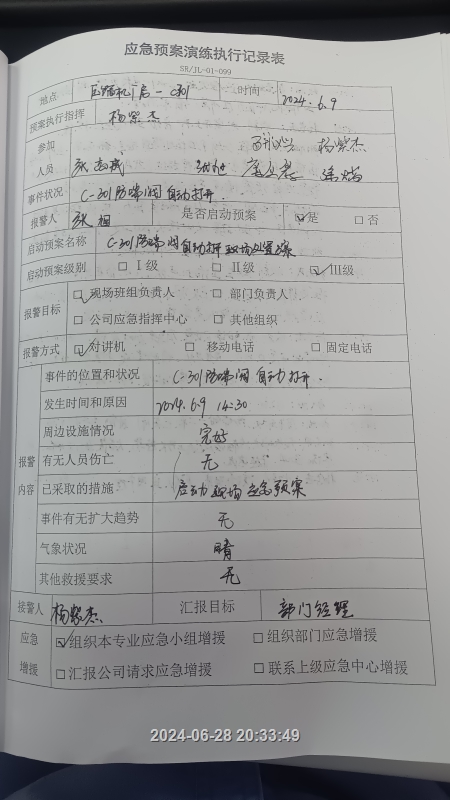 应急预案演练执行记录表
SR/JL-01-099
地点 压缩机厂房-C301 时间 2024.6.9
预案执行指挥 杨紫杰
参加 杨紫杰
人员
事件状况 C-301防喘阀自动打开.
报警人 张相 是否启动预案 ☑是 □否
启动预案名称 C-301防喘阀自动打开现场处置预案
启动预案级别 □Ⅰ级 □Ⅱ级 ☑Ⅲ级
报警目标 ☑现场班组负责人 □部门负责人
□公司应急指挥中心 □其他组织
报警方式 ☑对讲机 □移动电话 □固定电话
事件的位置和状况 C-301防喘阀自动打开.
发生时间和原因 2024.6.9 14:30
周边设施情况 完好
报警 有无人员伤亡 无
内容 已采取的措施 启动现场应急预案
事件有无扩大趋势 无
气象状况 晴
其他救援要求 无
接警人 杨紫杰 汇报目标 部门经理
应急 ☑组织本专业应急小组增援 □组织部门应急增援
增援 □汇报公司请求应急增援 □联系上级应急中心增援
2024-06-28 20:33:49